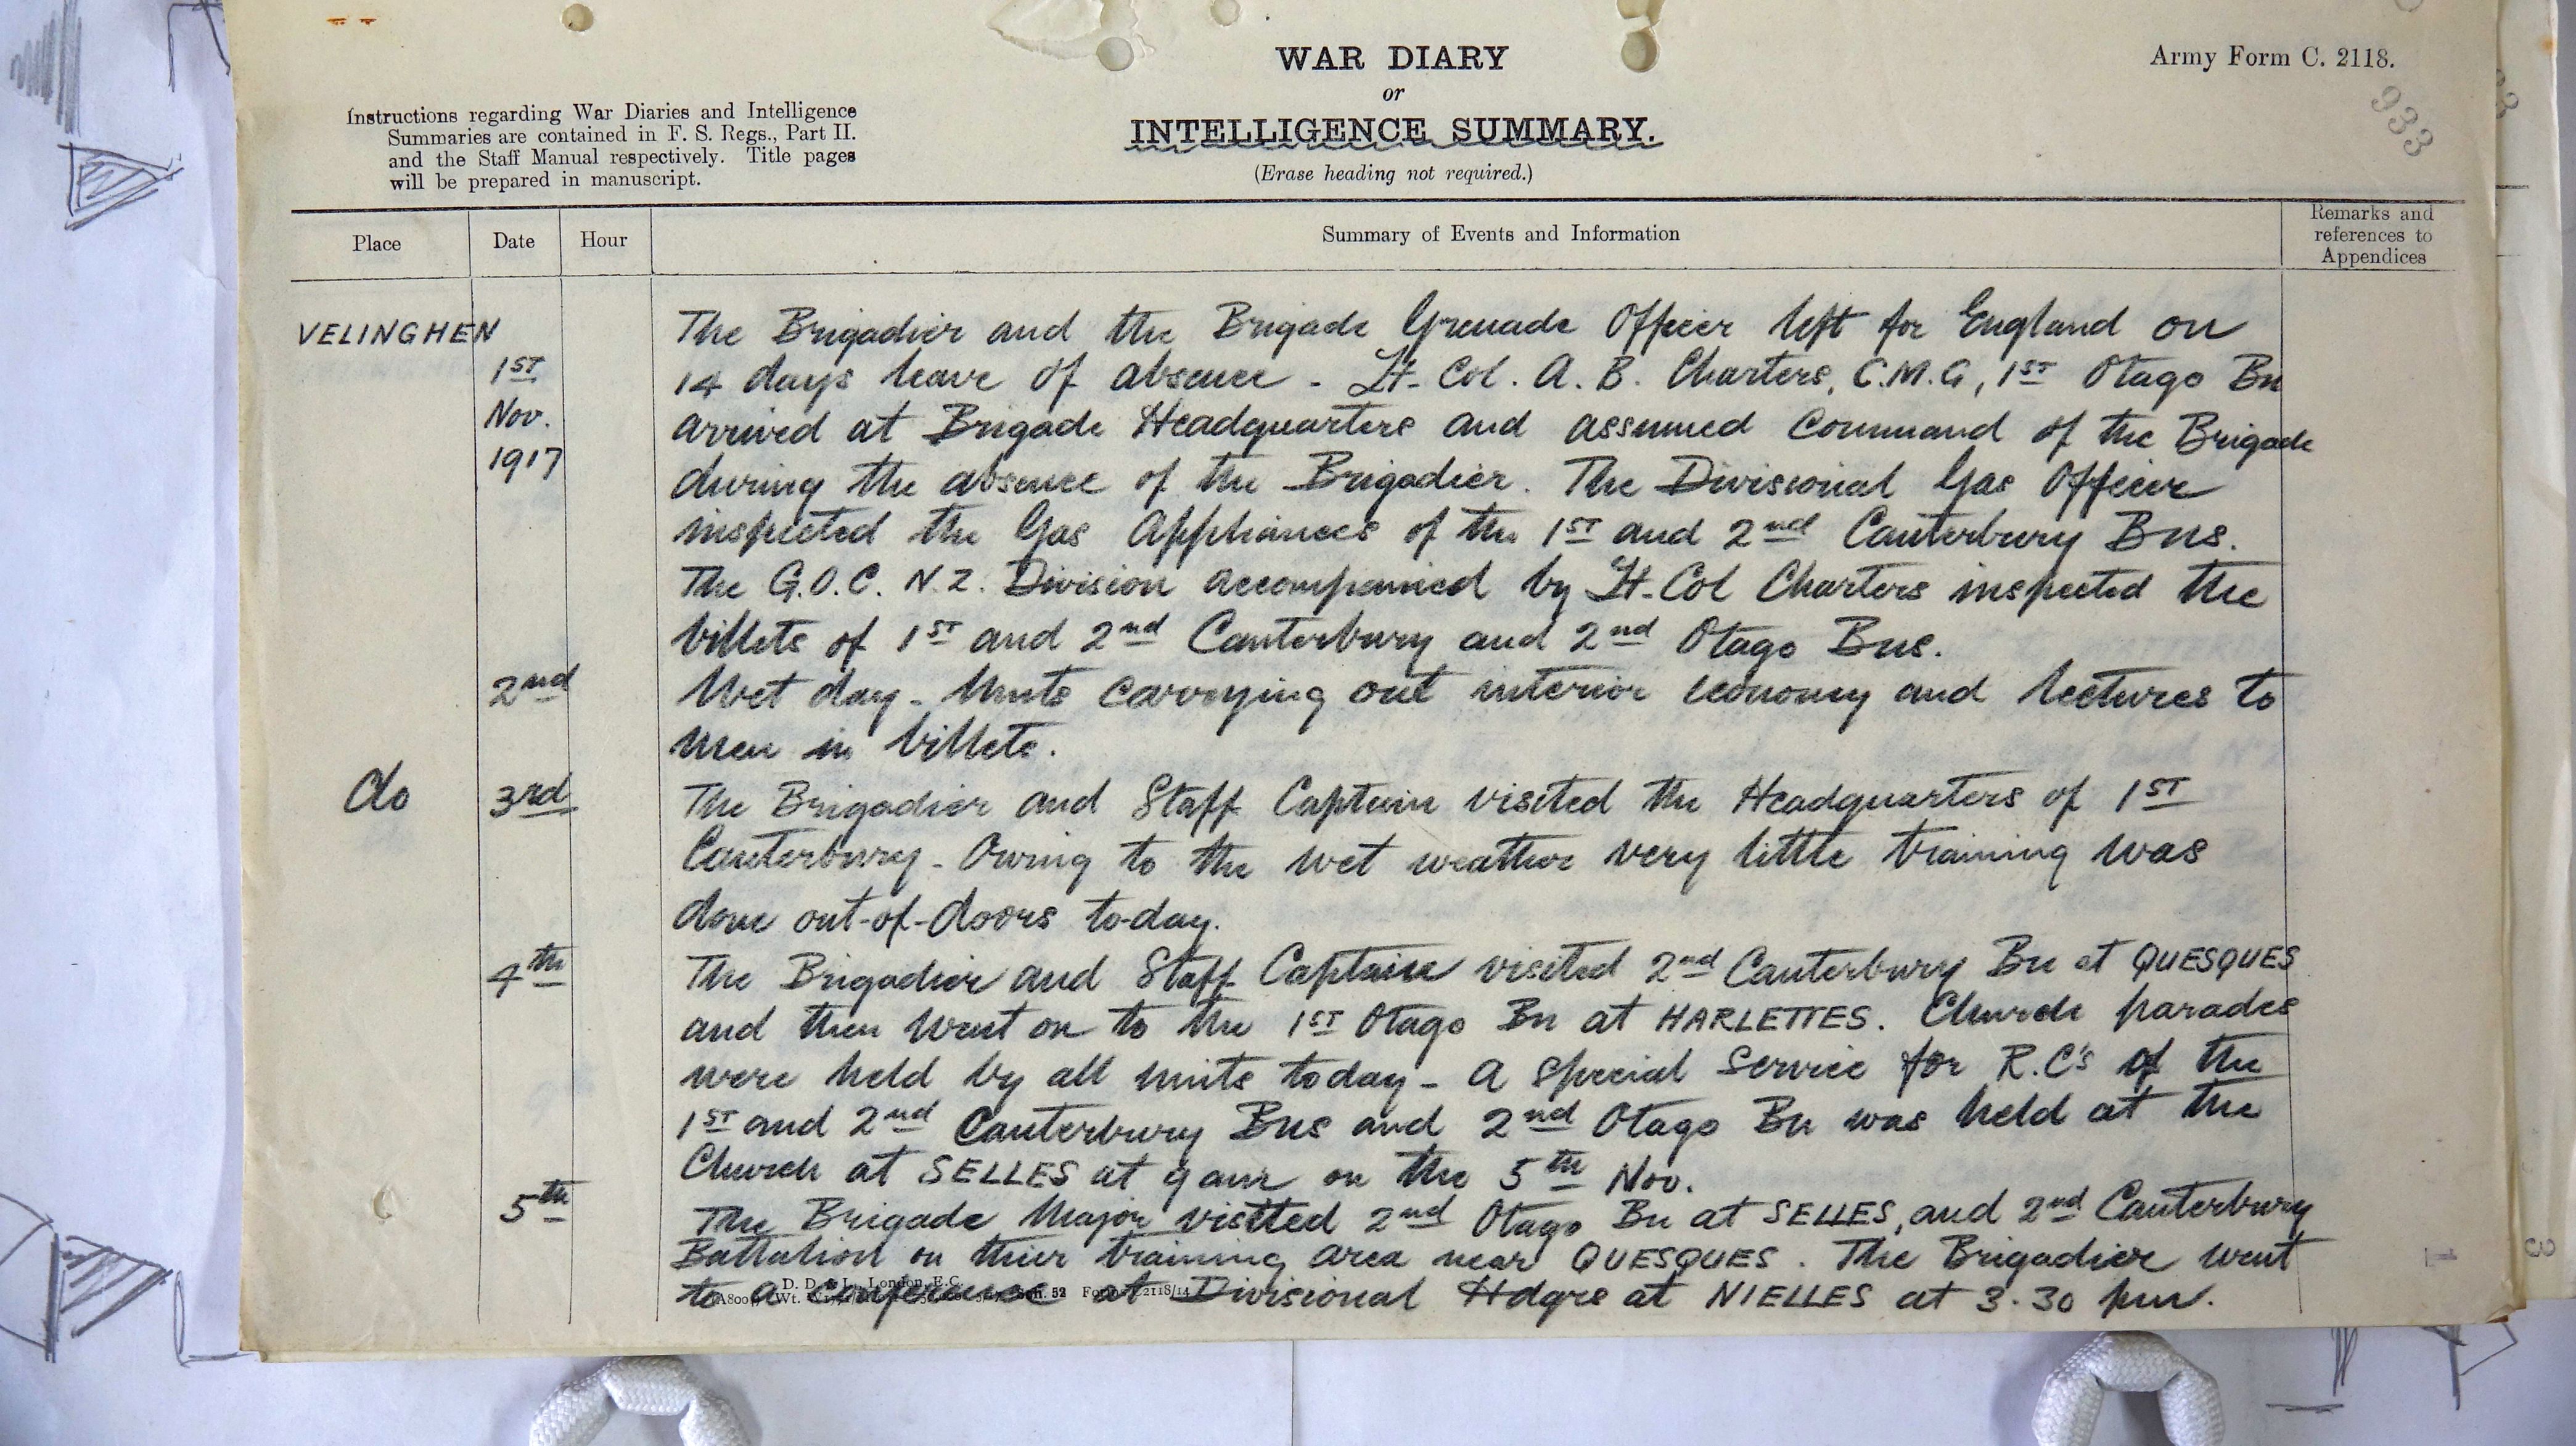 WAR DIARY
or
INTELLIGENCE SUMMARY.
(Erase heading not required.)
Army Form C. 2118.
933
Instructions regarding War Diaries and Intelligence
Summaries are contained in F. S. Regs., Part II.
and the Staff Manual respectively. Title pages
will be prepared in manuscript.
Place
Date
Hour
Summary of Events and Information
Remarks and
references to
Appendices
VELINGHEN
1ST
Nov.
1917
The Brigadier and the Brigade Grenade Officer left for England on
14 days leave of absence - Lt-Col. A. B. Charters, C.M.G, 1ST Otago Bn
arrived at Brigade Headquarters and assumed Command of the Brigade
during the absence of the Brigadier. The Divisional Gas Officer
inspected the Gas Appliances of the 1ST and 2nd Canterbury Bns.
The G.O.C. N.Z. Division accompanied by Lt-Col Charters inspected the
billets of 1ST and 2nd Canterbury and 2nd Otago Bns.
2nd
Wet day - Units carrying out interior economy and lectures to
men in billets.
do
3rd
The Brigadier and Staff Captain visited the Headquarters of 1ST
Canterbury - Owing to the wet weather very little training was
done out-of-doors to-day.
4th
The Brigadier and Staff Captain visited 2nd Canterbury Bn at QUESQUES
and then went on to the 1ST Otago Bn at HARLETTES. Church parades
were held by all units today - A special service for R.C's of the
1ST and 2nd Canterbury Bns and 2nd Otago Bn was held at the
Church at SELLES at 9 am on the 5th Nov.
5th
The Brigade Major visited 2nd Otago Bn at SELLES, and 2nd Canterbury
Battalion on their training area near QUESQUES. The Brigadier went
to a Conference at Divisional Hdqrs at NIELLES at 3.30 pm.
D. D. & L., London, E.C.
Sch. 52